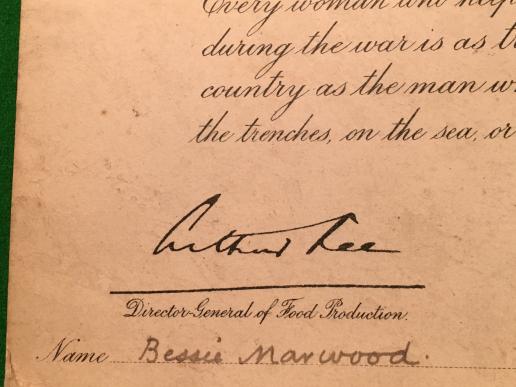 Every woman who help
during the war is as t
country as the man w
the trenches, on the sea, or
Arthur Lee
Director-General of Food Production.
Name Bessie Marwood.